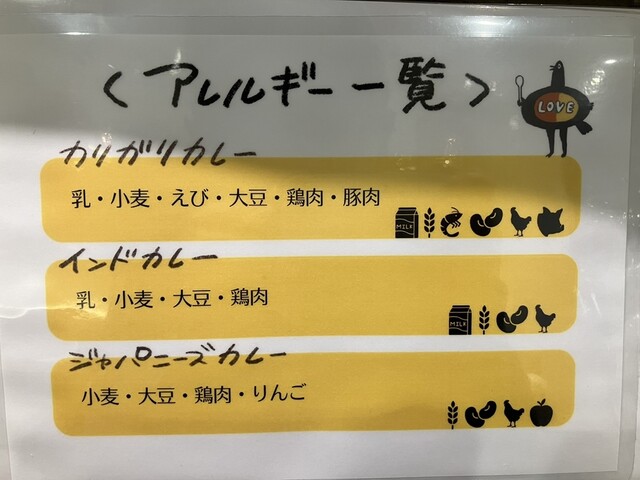 〈アレルギー一覧〉
LOVE
カリガリカレー
乳・小麦・えび・大豆・鶏肉・豚肉
MILK
インドカレー
乳・小麦・大豆・鶏肉
MILK
ジャパニーズカレー
小麦・大豆・鶏肉・りんご